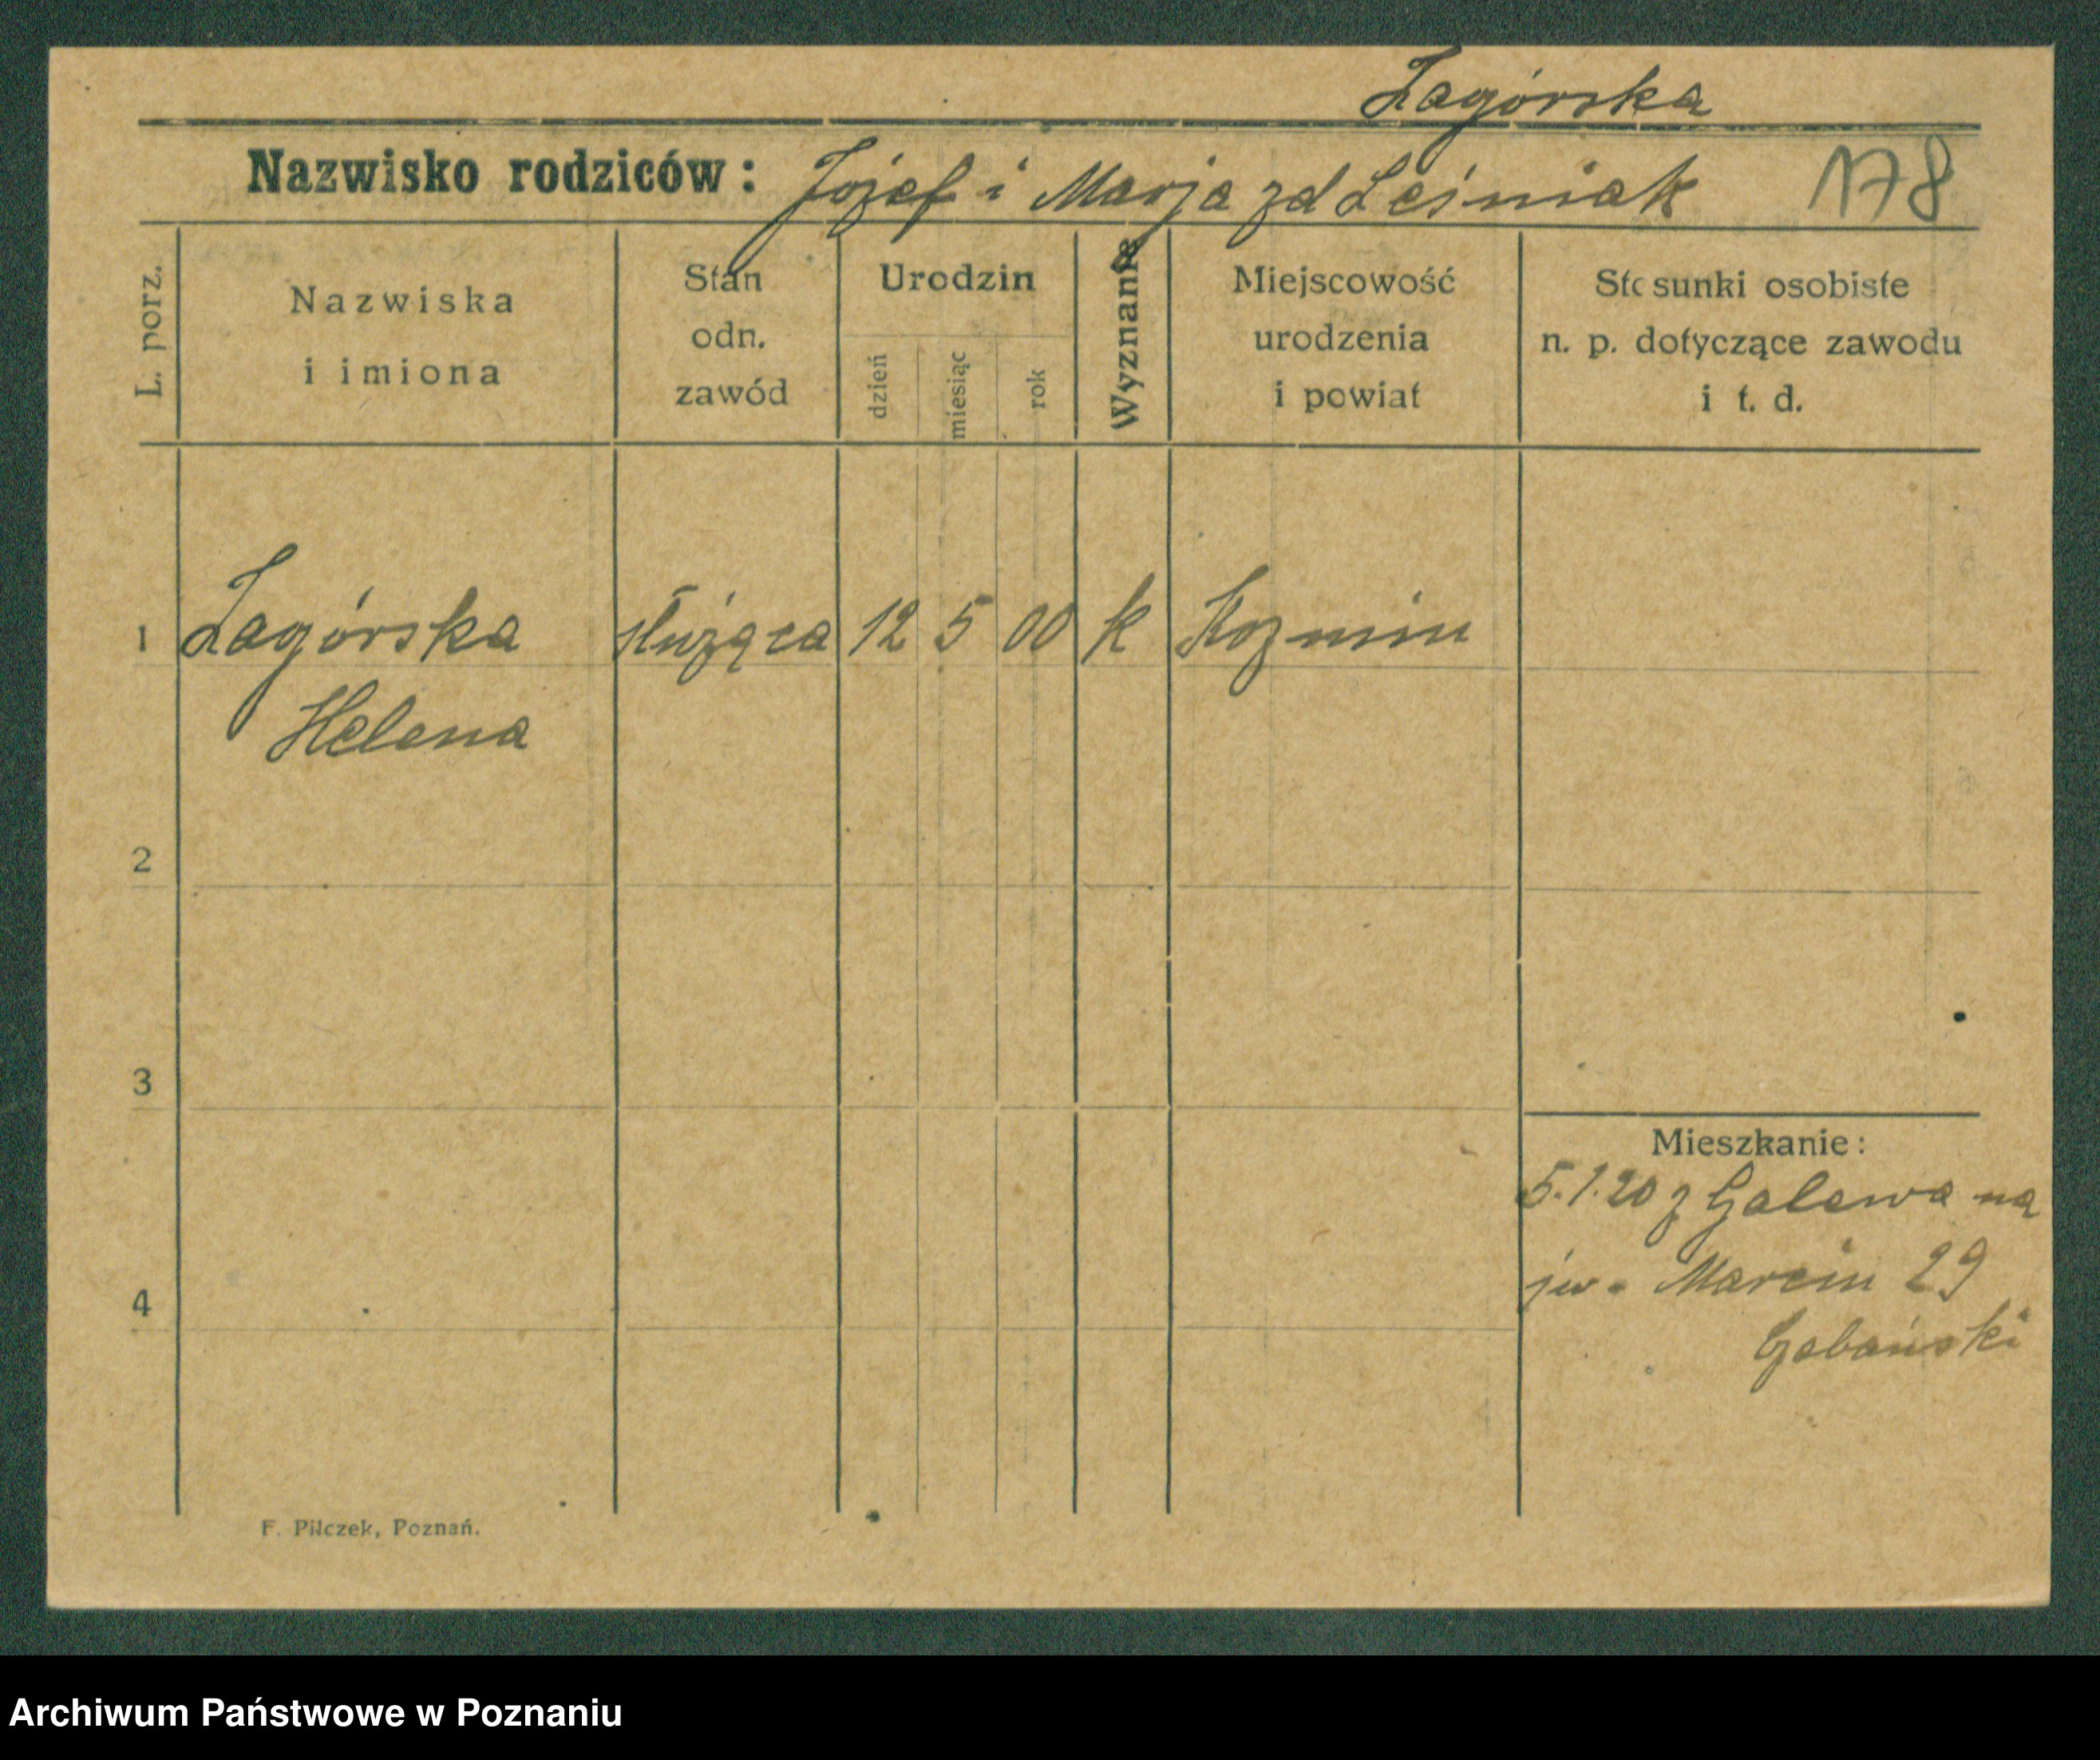 Zagórska
Nazwisko rodziców: Józef i Marja zd Leśniak 178
L. porz.
Nazwiska
i imiona
Stan
odn.
zawód
Urodzin
dzień
miesiąc
rok
Wyznanie
Miejscowość
urodzenia
i powiat
Stosunki osobiste
n. p. dotyczące zawodu
i t. d.
1 Zagórska służąca 12 5 00 k Kozmin
Helena
2
3
Mieszkanie:
5.1.20 z Galewa na
św. Marcin 29
4
F. Pilczek, Poznań.
Archiwum Państwowe w Poznaniu